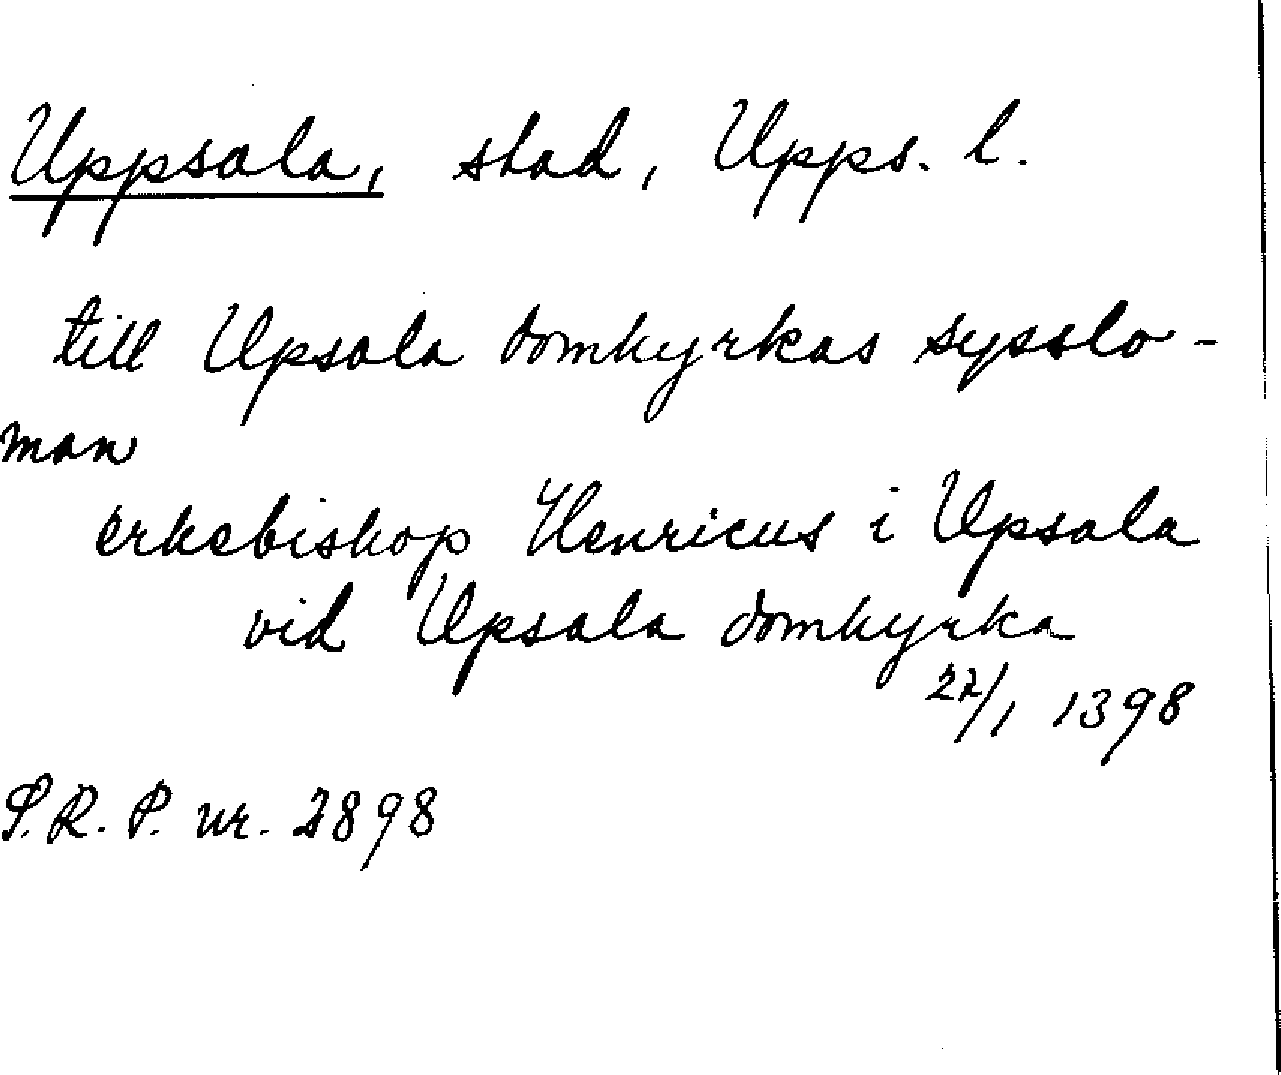 Uppsala, stad, Upps. l.
till Upsala domkyrkas sysslo-
man
erkebiskop Henricus i Upsala
vid Upsala domkyrka
22/1 1398
S.R.P. nr. 2898